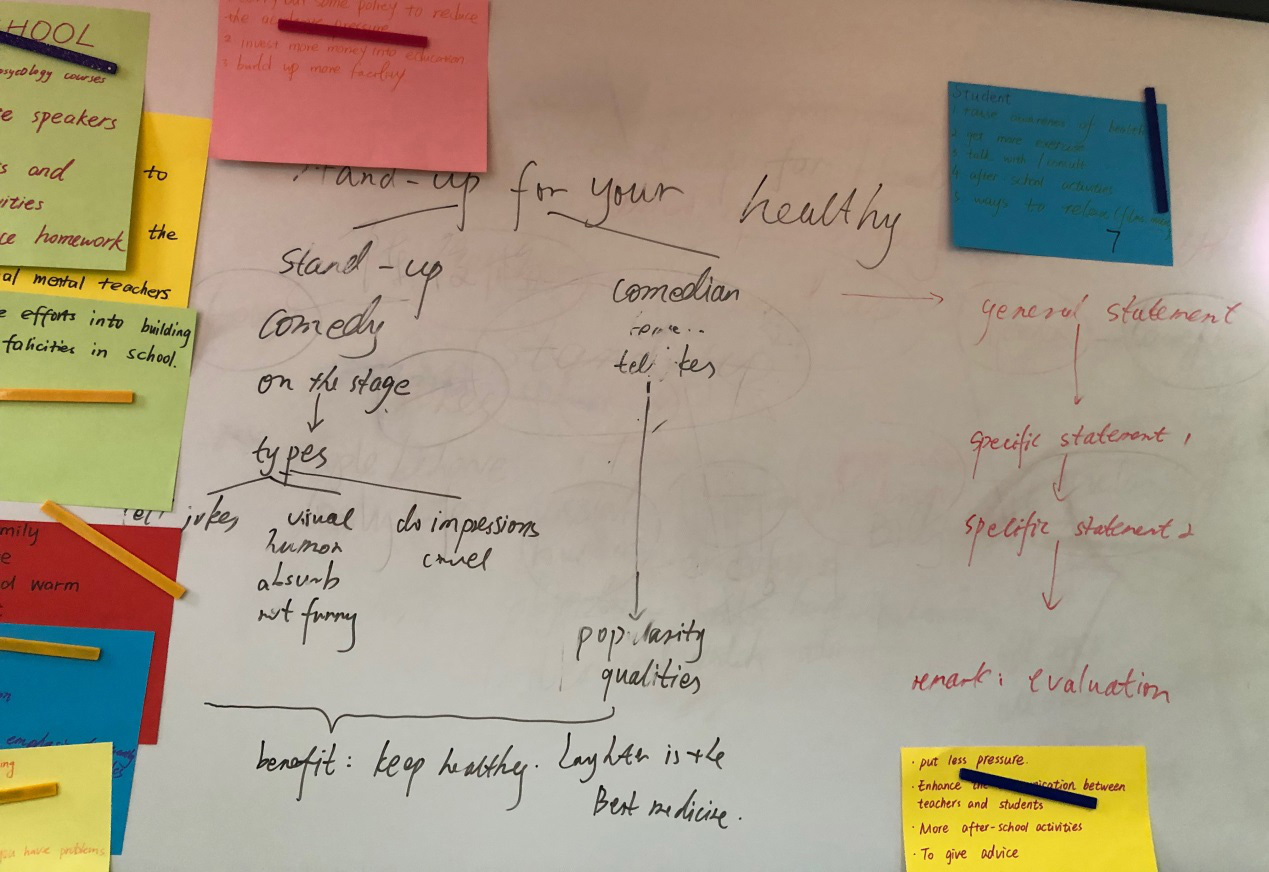 HOOL
psycology courses
e speakers
s and
vities
ce homework
to
the
al mental teachers
e efforts into building
falicities in school.
mily
e
od warm
ing
you have problems
some policy to reduce
the
2 invest more money into education
3 build up more facility
Stand-up for your healthy
stand-up
comedy
on the stage
types
jokes
visual
humor
absurb
not funny
do impressions
cruel
comedian
popularity
qualities
benefit: keep healthy. Laughter is the
Best medicine.
Student
1 raise awareness of health
2 get more exercise
3 talk with
4 after-school activities
5 ways to relax
7
general statement
specific statement 1
specific statement 2
remark: evaluation
· put less pressure.
· Enhance the between
teachers and students
· More after-school activities
· To give advice